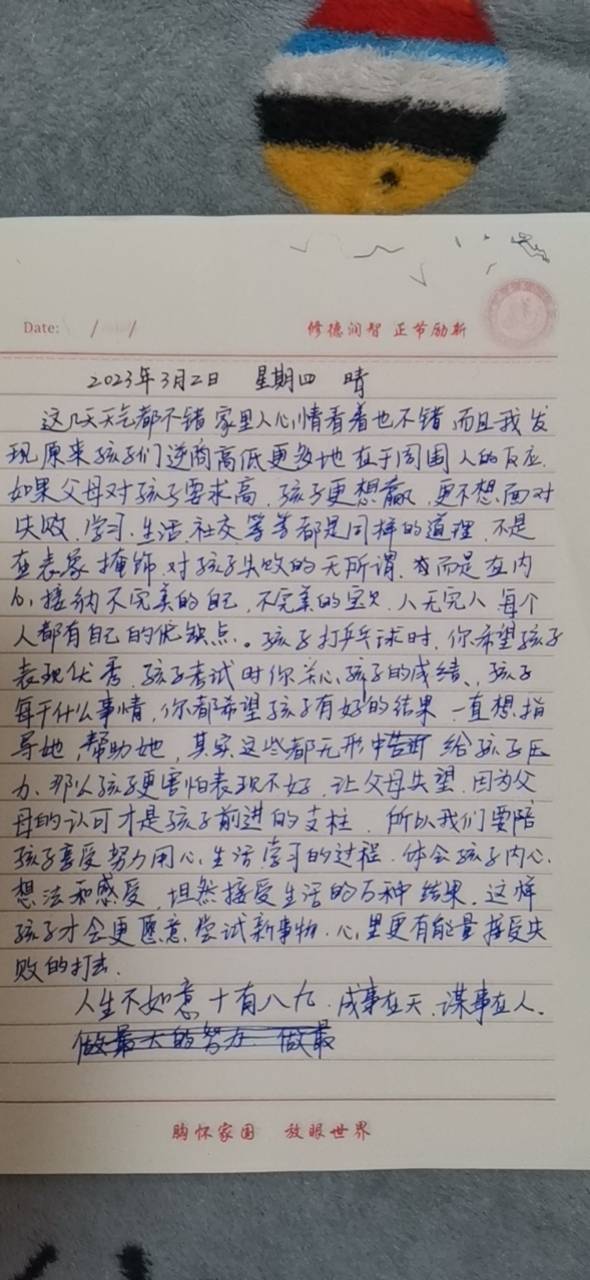 Date: / /
修德润智 正节励新
2023年3月2日 星期四 晴
这几天天气都不错 家里人心情看着也不错 而且我发
现原来孩子们逆商高低更多地在于周围人的反应.
如果父母对孩子要求高, 孩子更想赢, 更不想面对
失败, 学习、生活、社交等等都是同样的道理, 不是
在表象掩饰对孩子失败的无所谓, 而是在内
心接纳不完美的自己, 不完美的宝贝, 人无完人 每个
人都有自己的优缺点。孩子打乒乓球时, 你希望孩子
表现优秀, 孩子考试时你关心孩子的成绩、孩子
每干什么事情, 你都希望孩子有好的结果 一直想指
导她, 帮助她, 其实这些都无形中 给孩子压
力. 那么孩子更害怕表现不好, 让父母失望. 因为父
母的认可才是孩子前进的支柱. 所以我们要陪
孩子享受努力用心生活学习的过程. 体会孩子内心
想法和感受, 坦然接受生活的百种结果. 这样
孩子才会更愿意尝试新事物. 心里更有能量接受失
败的打击.
人生不如意十有八九. 成事在天. 谋事在人.
做最大的努力 做最
胸怀家国 放眼世界